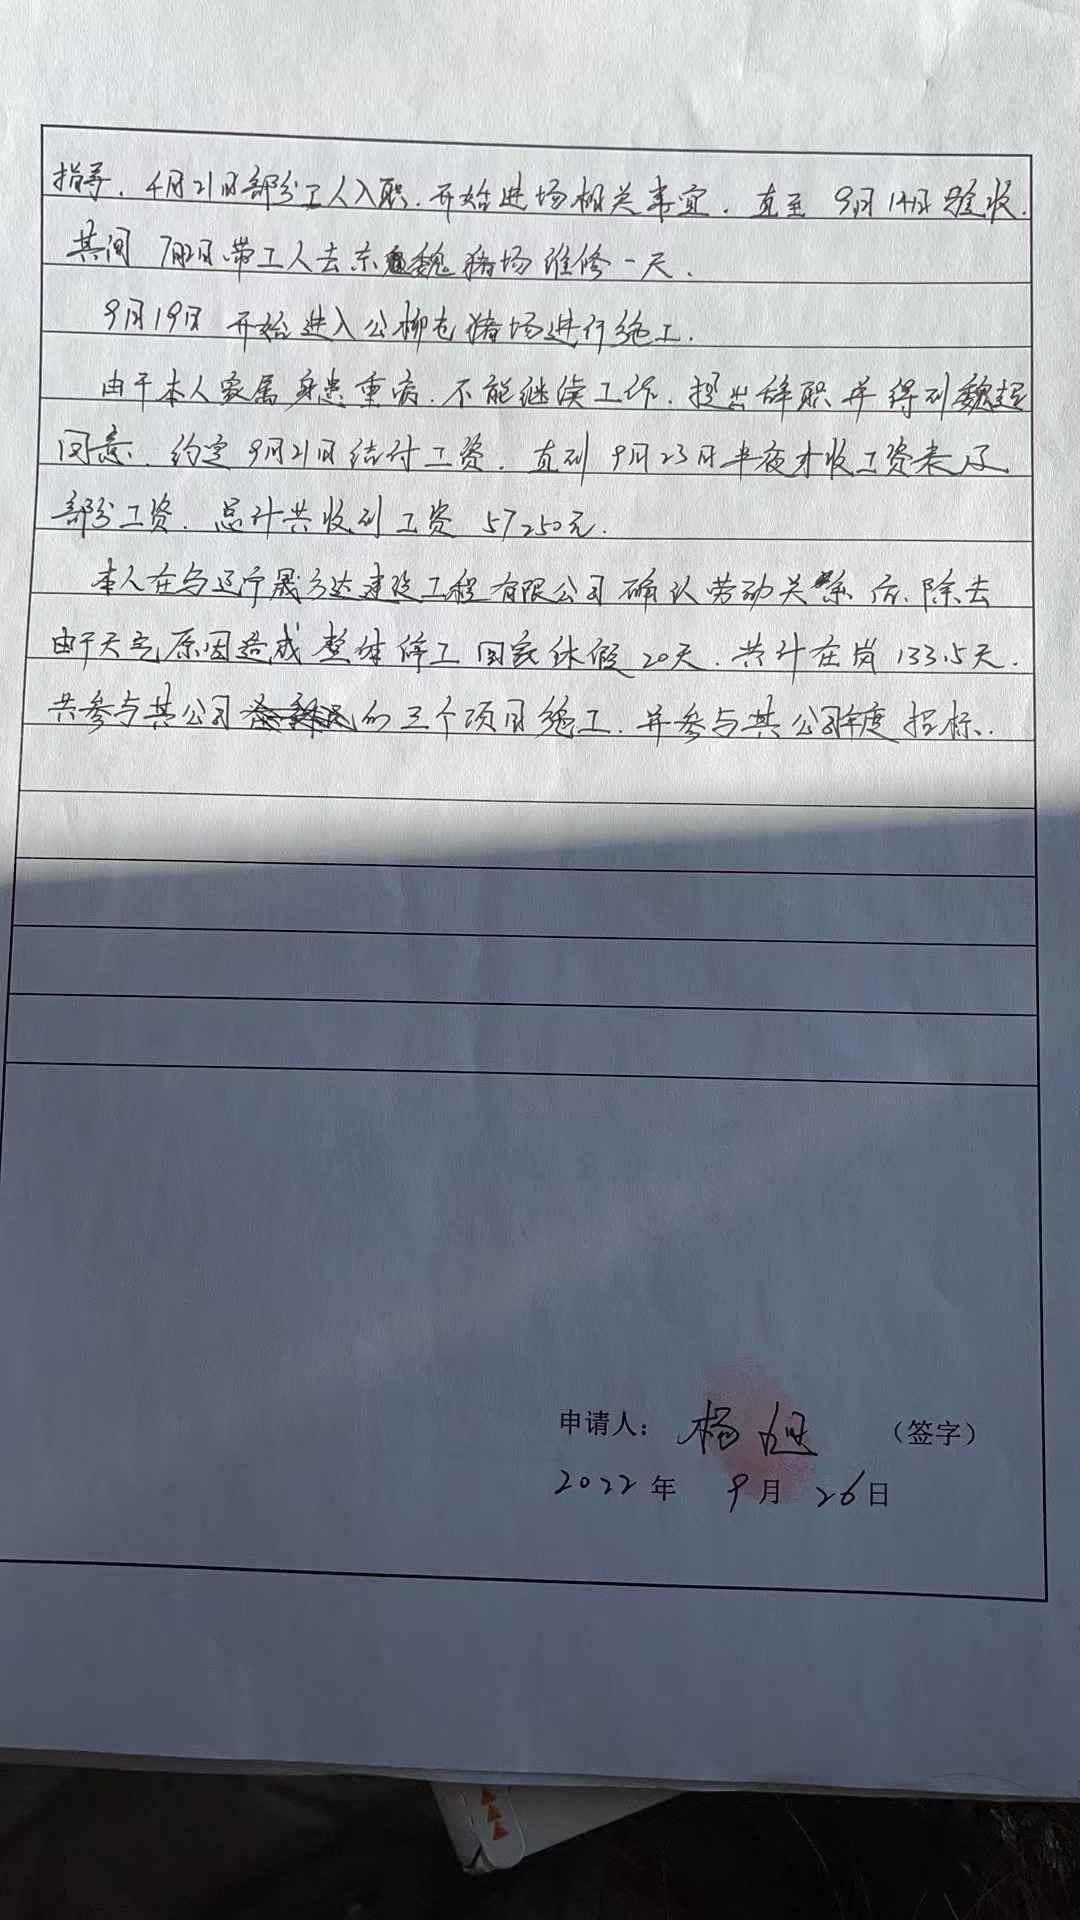 指导，4月21日部分工人入职，开始进场相关事宜，直至 9月14日验收，
其间 7月2日带工人去东魏猪场维修一天，
9月19日 开始进入公柳屯猪场进行施工，
由于本人家属身患重病，不能继续工作，提出辞职并得到魏超
同意，约定9月21日结付工资，直到9月23日半夜才收工资表及
部分工资，总计共收到工资 57250元，
本人在与辽宁晟方达建设工程有限公司确认劳动关系后，除去
由于天气原因造成整体停工 国家休假20天，共计在岗133.5天，
共参与其公司的三个项目施工，并参与其公司年度招标，
申请人： 杨旭 （签字）
2022年 9月 26日